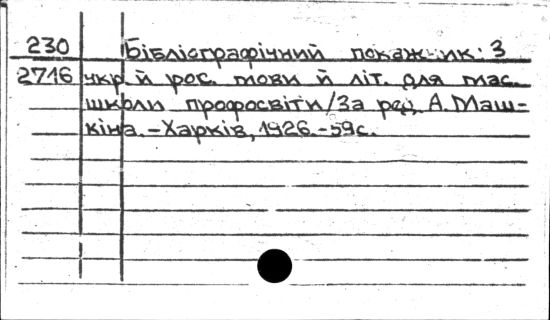 230 Бібліографічний покажчик: З
2716 укр. й рос. мови й літ. для мас.
школи профосвіти/За ред. А.Маш-
кіна.-Харків, 1926.-59с.